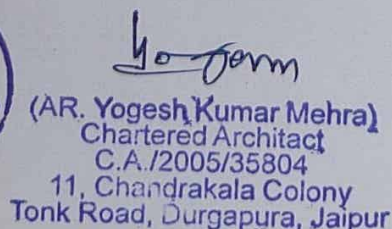 (AR. Yogesh Kumar Mehra)
Chartered Architact
C.A./2005/35804
11, Chandrakala Colony
Tonk Road, Durgapura, Jaipur